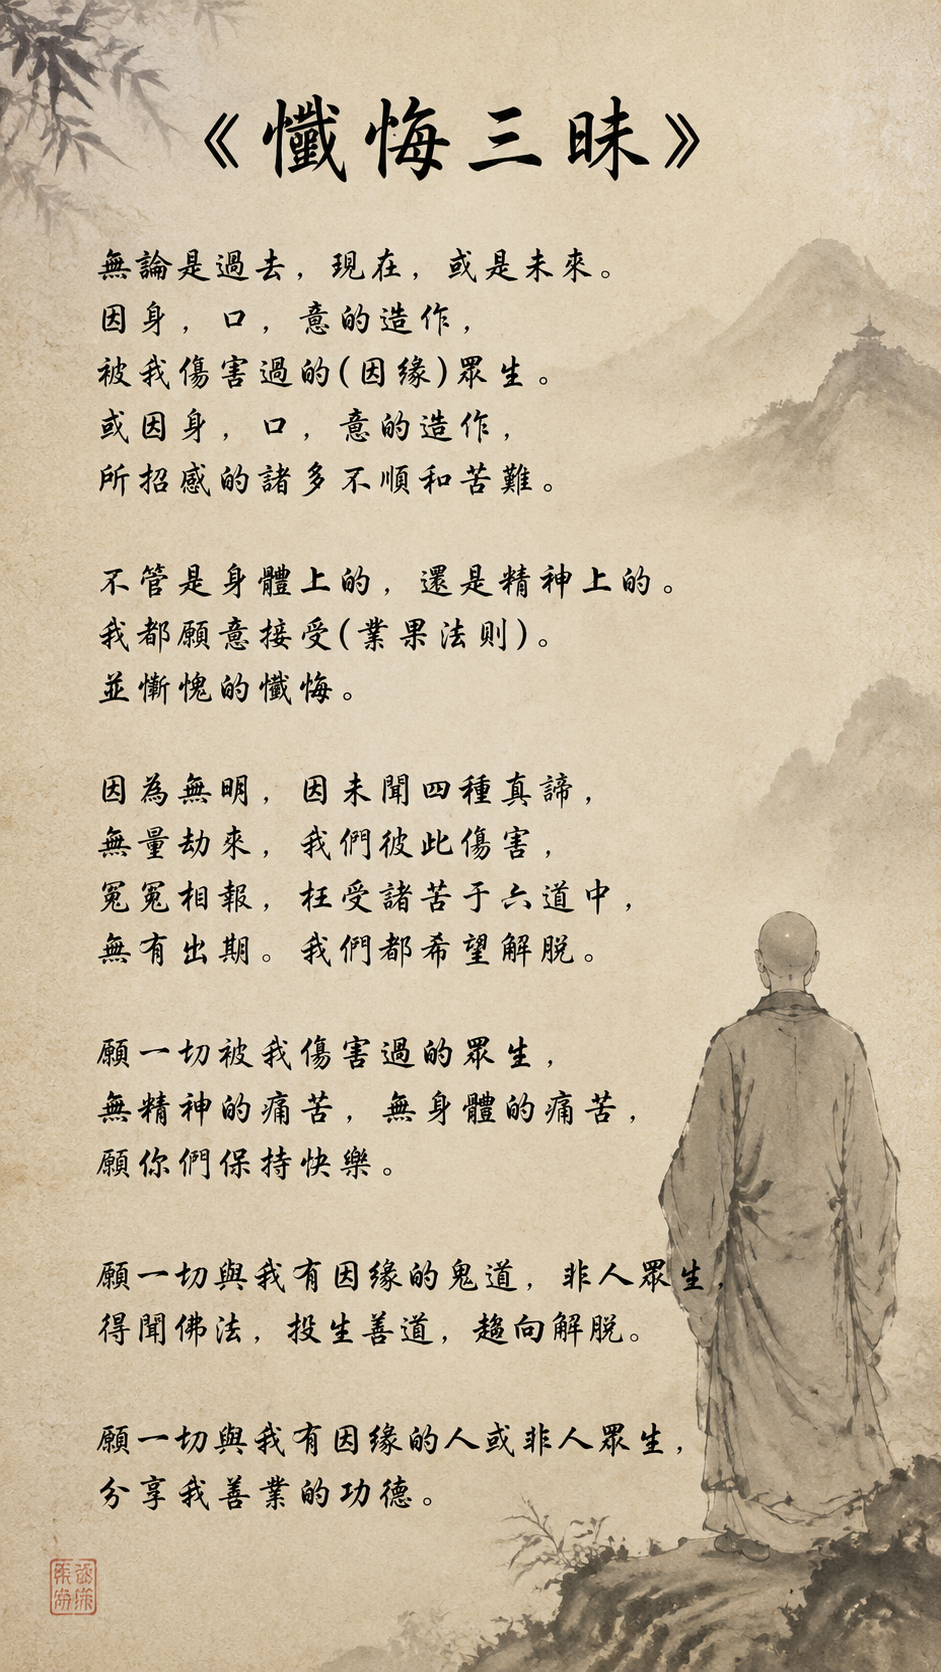 《懺悔三昧》
無論是過去，現在，或是未來。
因身，口，意的造作，
被我傷害過的(因缘)眾生。
或因身，口，意的造作，
所招感的諸多不順和苦難。
不管是身體上的，還是精神上的。
我都願意接受(業果法則)。
並慚愧的懺悔。
因為無明，因未聞四種真諦，
無量劫來，我們彼此傷害，
冤冤相報，枉受諸苦于六道中，
無有出期。我們都希望解脱。
願一切被我傷害過的眾生，
無精神的痛苦，無身體的痛苦，
願你們保持快樂。
願一切與我有因缘的鬼道，非人眾生，
得聞佛法，投生善道，趨向解脱。
願一切與我有因缘的人或非人眾生，
分享我善業的功德。